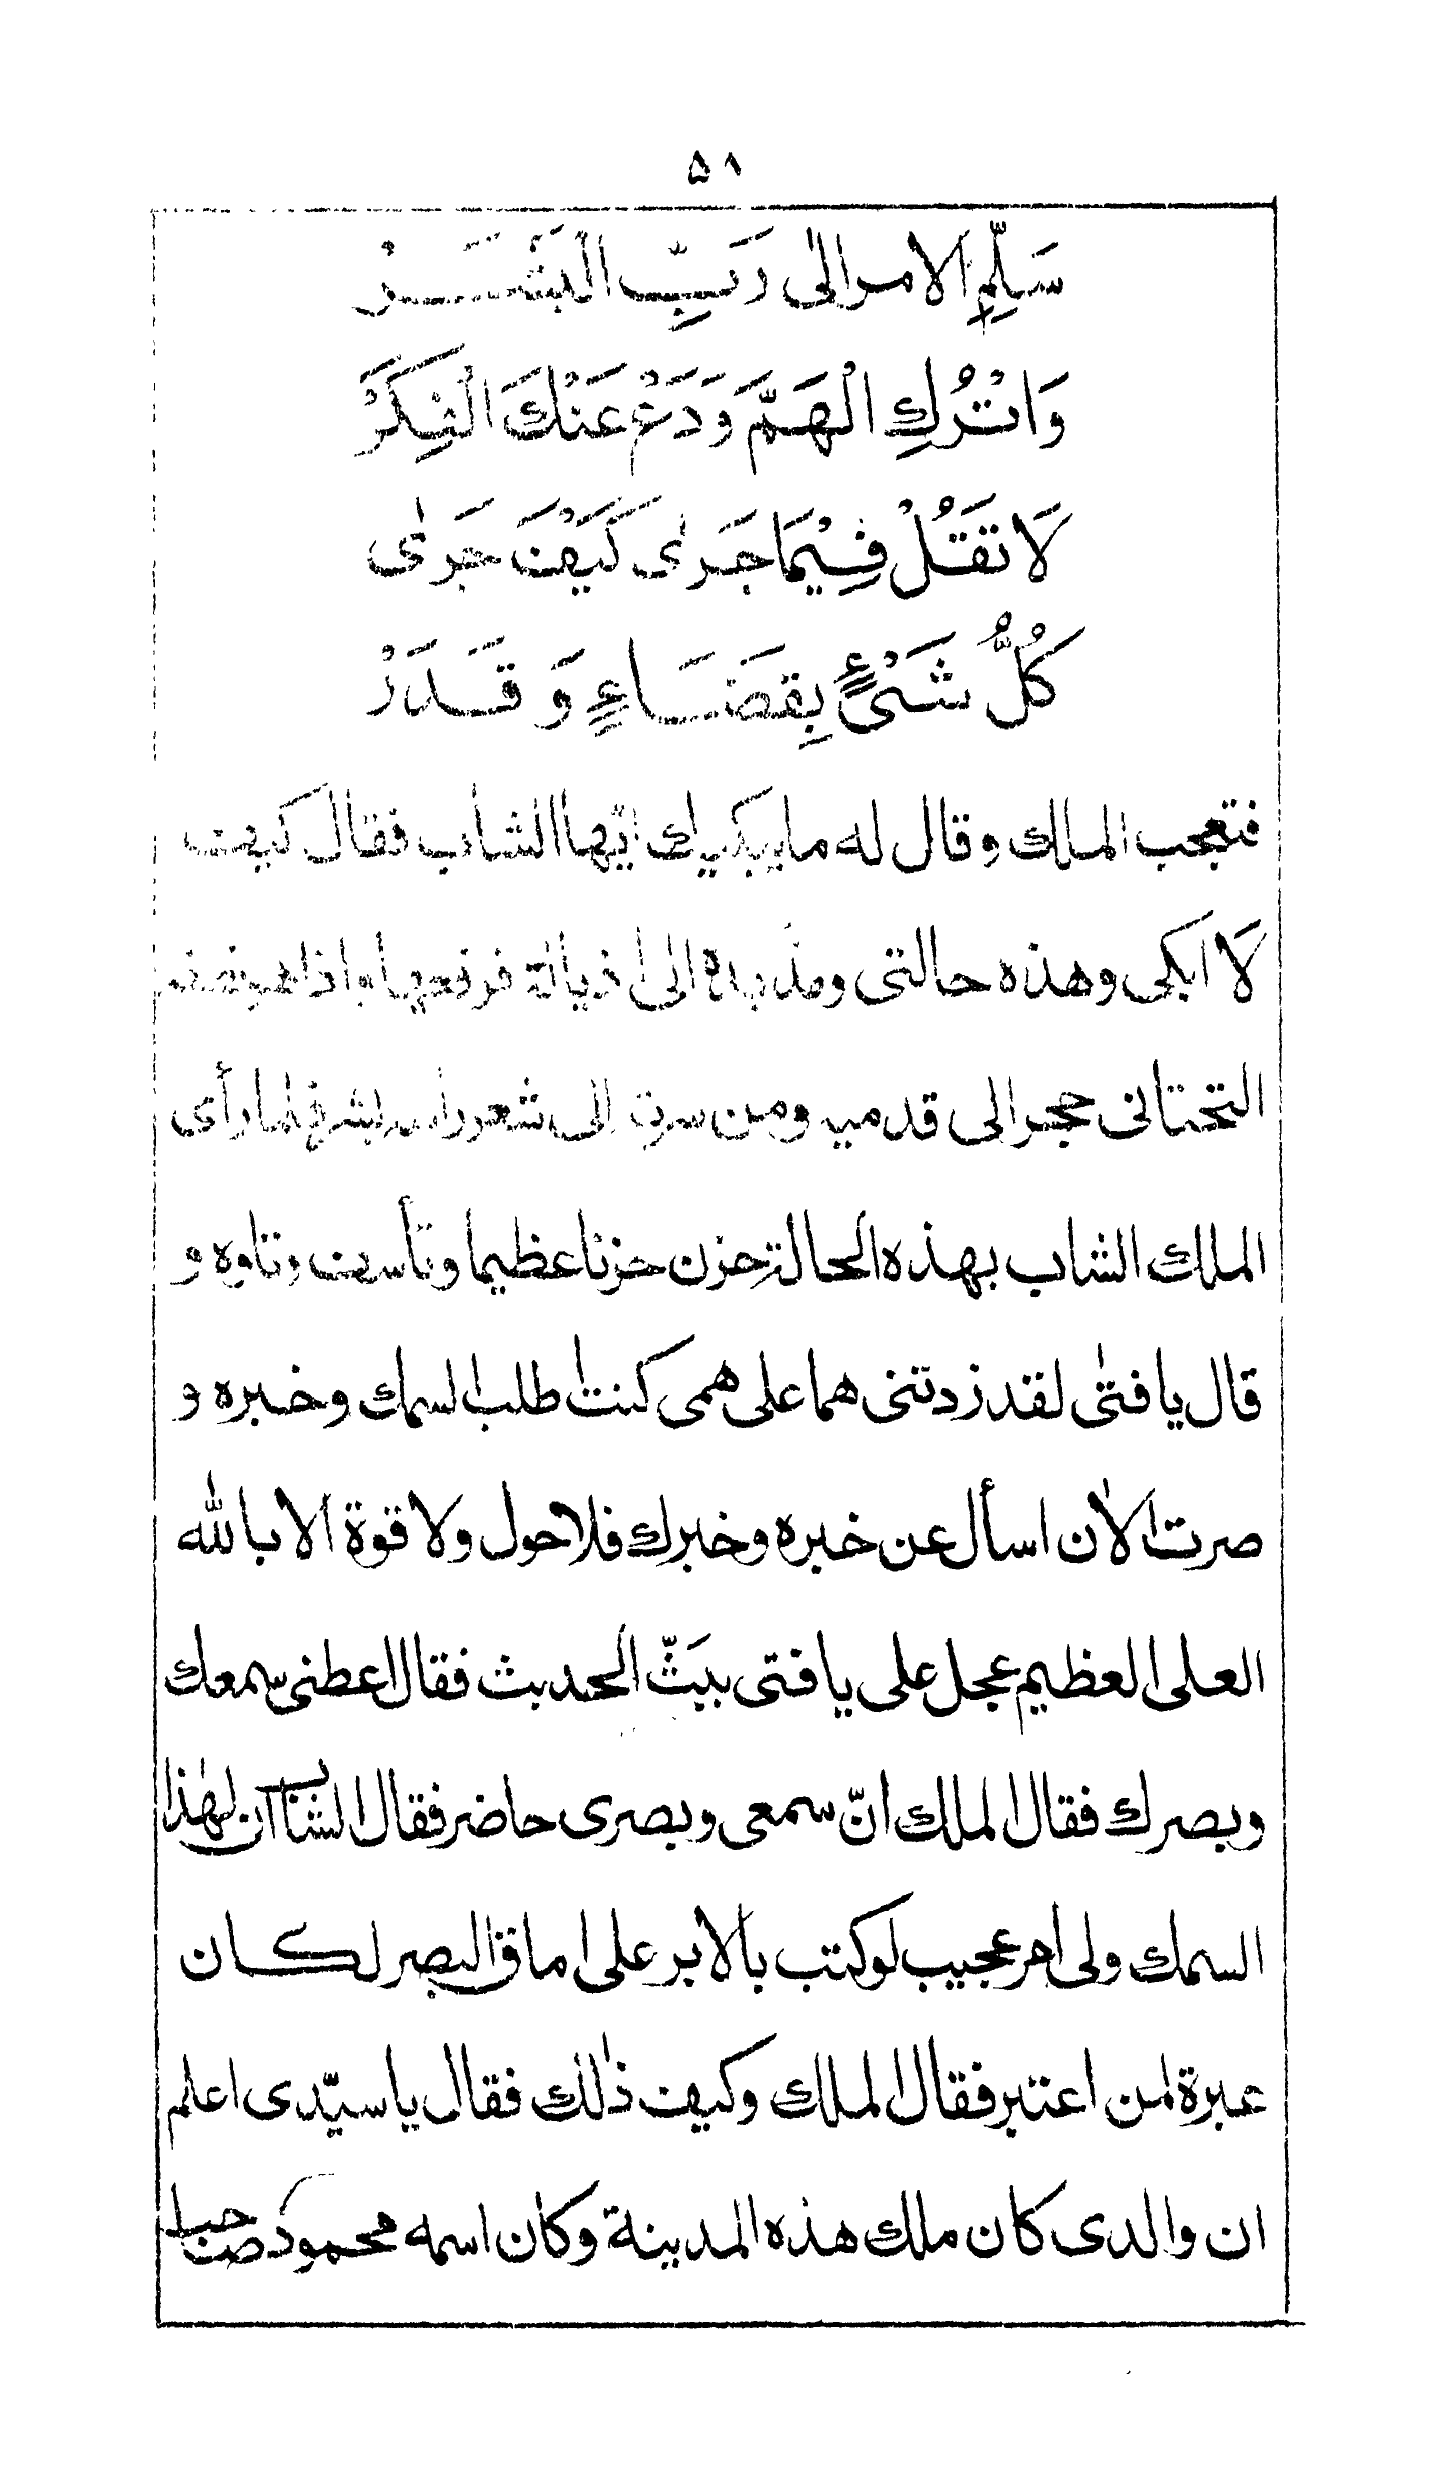 ٥٨
سَلِّمِ الامر الىٰ رَبِّ الْبَشَرْ
وَاتْرُكِ الْهَمَّ وَدَعْ عَنْكَ الْفِكَرْ
لَا تَقُلْ فِيْمَا جَرىٰ كَيْفَ جَرىٰ
كُلُّ شَىْءٍ بِقَضَاءٍ وَ قَدَرْ
فتعجب الملك وقال له ما يبكيك ايّها الشاب فقال كيف
لَا ابكى وهذه حالتى ومدّ يده الى اذياله فرفعها واذا هو نصفه
التحتانى حجر الى قدميه ومن سرته الى شعر راسه بشر فلما رأى
الملك الشاب بهذه الحالة حزن حزنا عظيما وتأسف وتاوه و
قال يا فتىٰ لقد زدتنى هما على همى كنت اطلب السمك وخبره و
صرت الان اسأل عن خبره وخبرك فلا حول ولا قوة الا بالله
العلى العظيم عجل على يا فتى ببَثّ الحديث فقال اعطنى سمعك
وبصرك فقال الملك انّ سمعى وبصرى حاضر فقال الشاب ان لهٰذا
السمك ولى امر عجيب لو كتب بالابر على اماق البصر لكان
عبرة لمن اعتبر فقال الملك وكيف ذٰلك فقال يا سيّدى اعلم
ان والدى كان ملك هذه المدينة وكان اسمه محمود صاحب